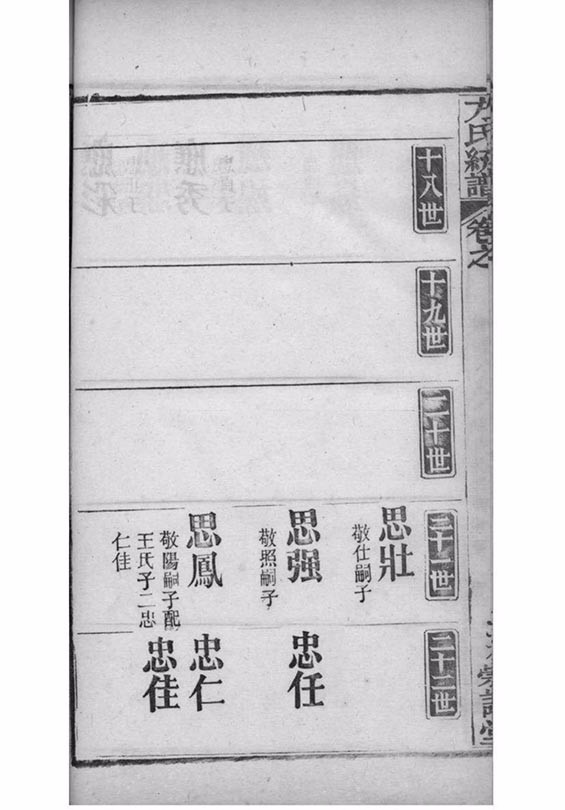 尤氏統譜 卷之
十八世
十九世
二十世
二十一世
二十二世
思壯
敬仕嗣子
思强
敬照嗣子
忠任
思鳳
敬陽嗣子配
王氏子二忠
仁佳
忠仁
忠佳